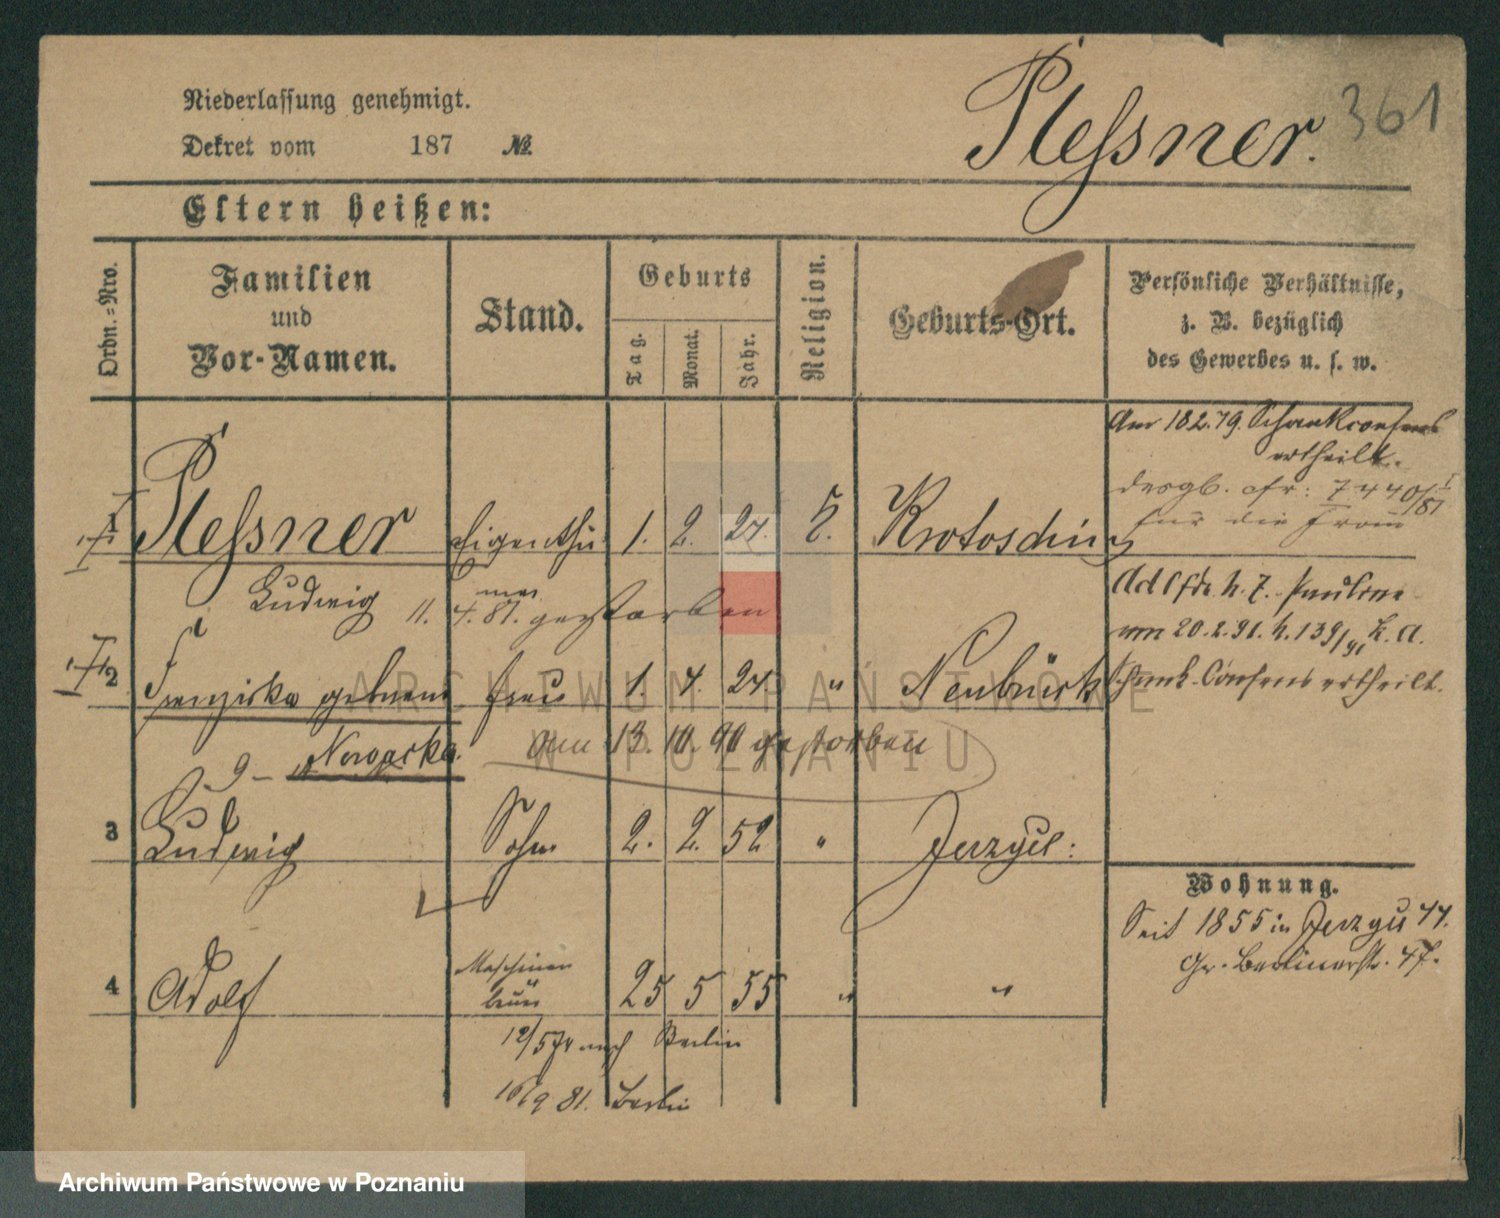 Plessner.
361
Niederlassung genehmigt.
Dekret vom 187 №
Eltern heißen:
Ordn.=Nro.
Familien
und
Vor-Namen.
Stand.
Geburts
Tag.
Monat.
Jahr.
Religion.
Geburts-Ort.
Persönliche Verhältnisse,
z. B. bezüglich
des Gewerbes u. s. w.
Am 18 2. 79. Schankconsens
ertheilt.
desgl. cfr: 7440/81
für die Frau
1 Plessner Eigenthü 1. 2. 27. Krotoschin
Ludwig 11. 4. 81. gestorben
2 Franziska geborene Frau 1. 4. 24 " Neubrück
Nowacka. am 13. 10. 90 gestorben
20.2.91.
Schank-Consens ertheilt.
3 Ludwig Sohn 2. 2. 52 " Jerzyce:
4 Adolf Maschinen
bauer 25 5 55 " "
12/5 74 nach Berlin
16/9 81. Berlin
Wohnung.
Seit 1855 in Jerzyce 77.
Gr. Berlinerstr. 47.
ARCHIWUM PAŃSTWOWE
W POZNANIU
Archiwum Państwowe w Poznaniu